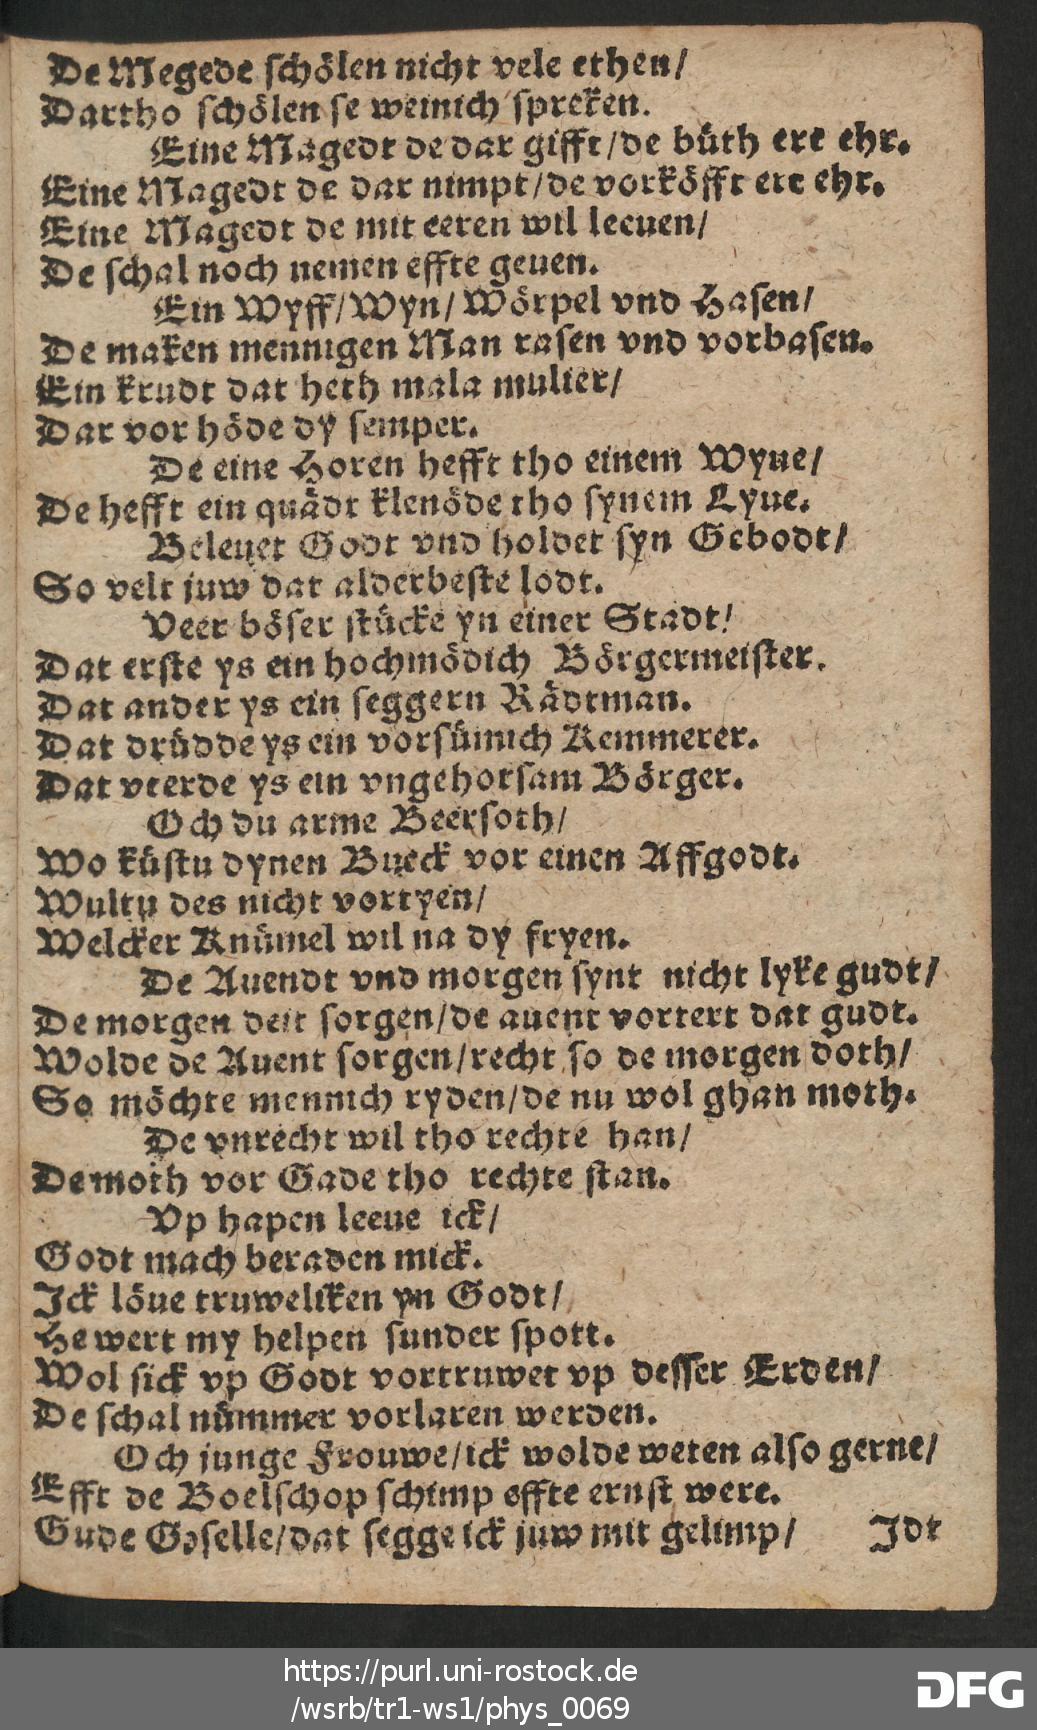 De Megede schölen nicht vele ethen/
Dartho schölen se weinich spreken.
Eine Magedt de dar gifft/de büth ere ehr.
Eine Magedt de dar nimpt/de vorköfft ere ehr.
Eine Magedt de mit eeren wil leeuen/
De schal noch nemen effte geuen.
Ein Wyff/Wyn/Wörpel vnd Hasen/
De maken mennigen Man rasen vnd vorbasen.
Ein krudt dat heth mala mulier/
Dar vor höde dy semper.
De eine Horen hefft tho einem Wyue/
De hefft ein quädt klenöde tho synem Lyue.
Beleuet Godt vnd holdet syn Gebodt/
So velt juw dat alderbeste lodt.
Veer böser stücke yn einer Stadt/
Dat erste ys ein hochmödich Börgermeister.
Dat ander ys ein seggern Rädtman.
Dat drüdde ys ein vorsümich Kemmerer.
Dat veerde ys ein vngehorsam Börger.
Och du arme Beersoth/
Wo küstu dynen Bueck vor einen Affgodt.
Wultu des nicht vortyen/
Welcker Knümel wil na dy fryen.
De Auendt vnd morgen synt nicht lyke gudt/
De morgen deit sorgen/de auent vortert dat gudt.
Wolde de Auent sorgen/recht so de morgen doth/
So möchte mennich ryden/de nu wol ghan moth.
De vnrecht wil tho rechte han/
De moth vor Gade tho rechte stan.
Vp hapen leeue ick/
Godt mach beraden mick.
Ick löue truweliken yn Godt/
He wert my helpen sunder spott.
Wol sick vp Godt vortruwet vp desser Erden/
De schal nümmer vorlaren werden.
Och junge Frouwe/ick wolde weten also gerne/
Efft de Boelschop schimp effte ernst were.
Gude Geselle/dat segge ick juw mit gelimp/
Idt
https://purl.uni-rostock.de
/wsrb/tr1-ws1/phys_0069
DFG